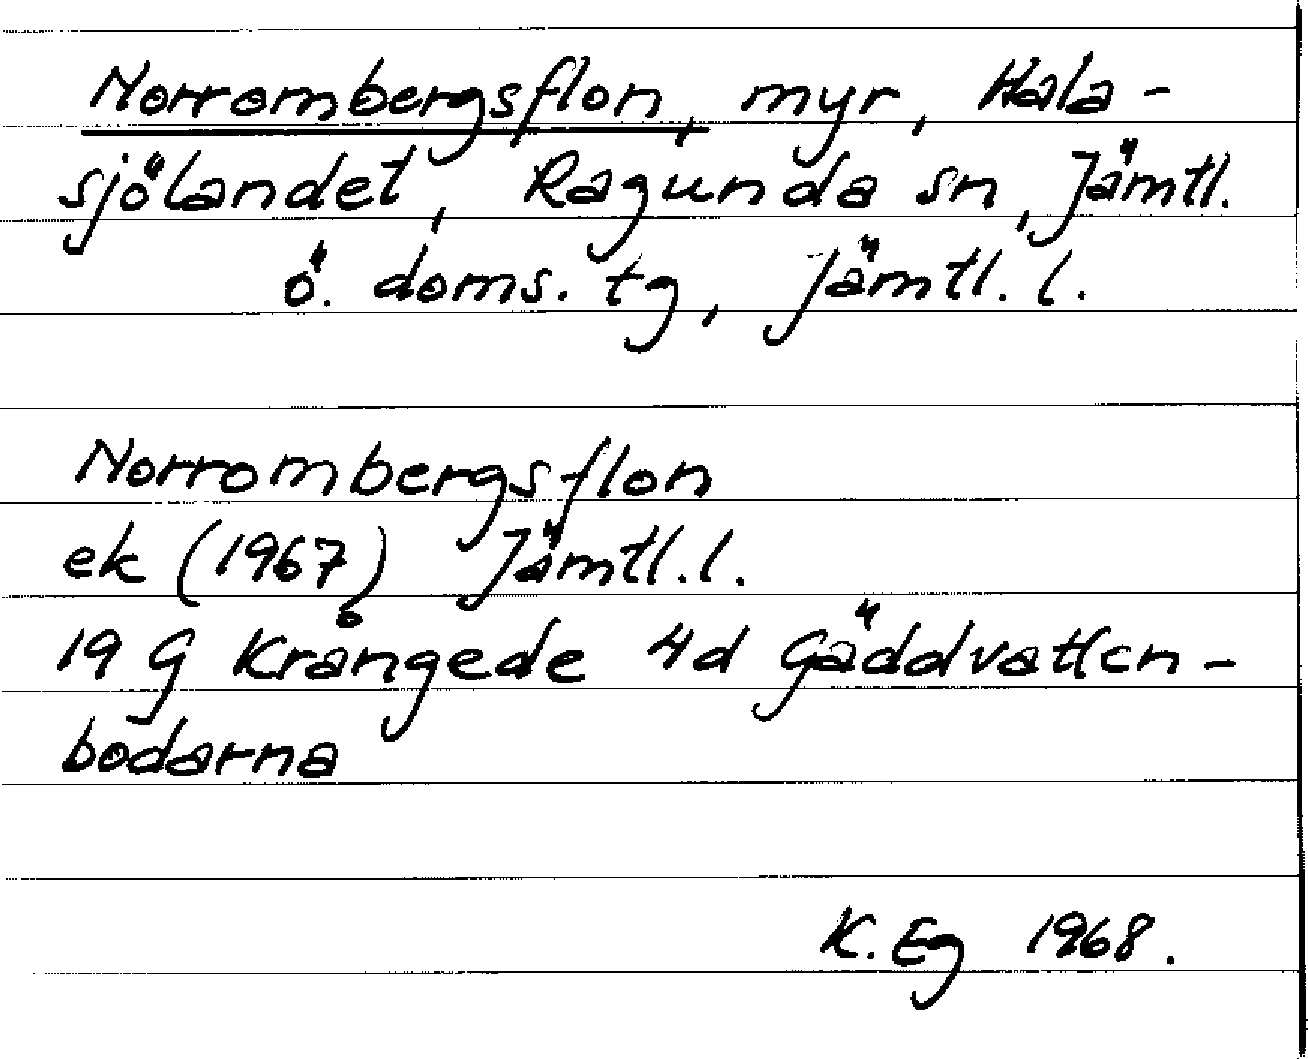 Norrombergsflon, myr, Hala-
sjölandet, Ragunda sn, Jämtl.
ö. doms. tg, Jämtl. l.
Norrombergsflon
ek (1967) Jämtl. l.
19 G Krångede 4d Gäddvatten-
bodarna
K. Eg 1968.